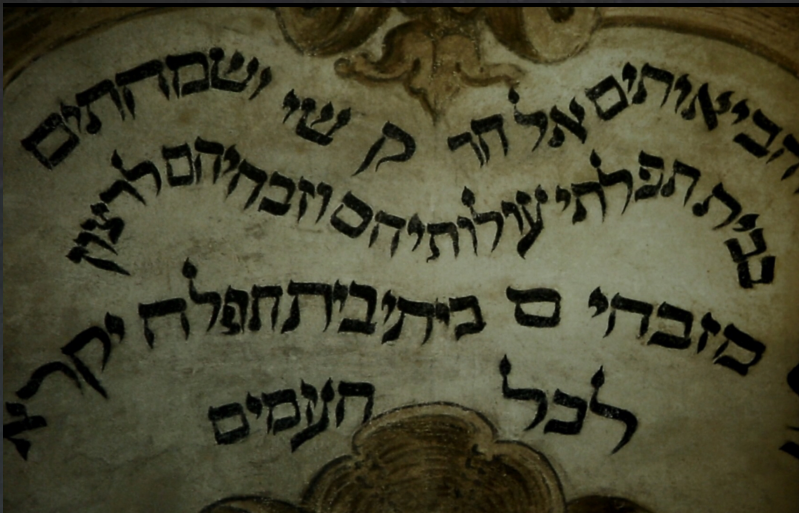 הביאותים אל הר ק שי ושמחתים
בית תפלתי עולותיהם וזבחיהם לרצון
מזבחי ם ביתי בית תפלה יקרא
לכל העמים